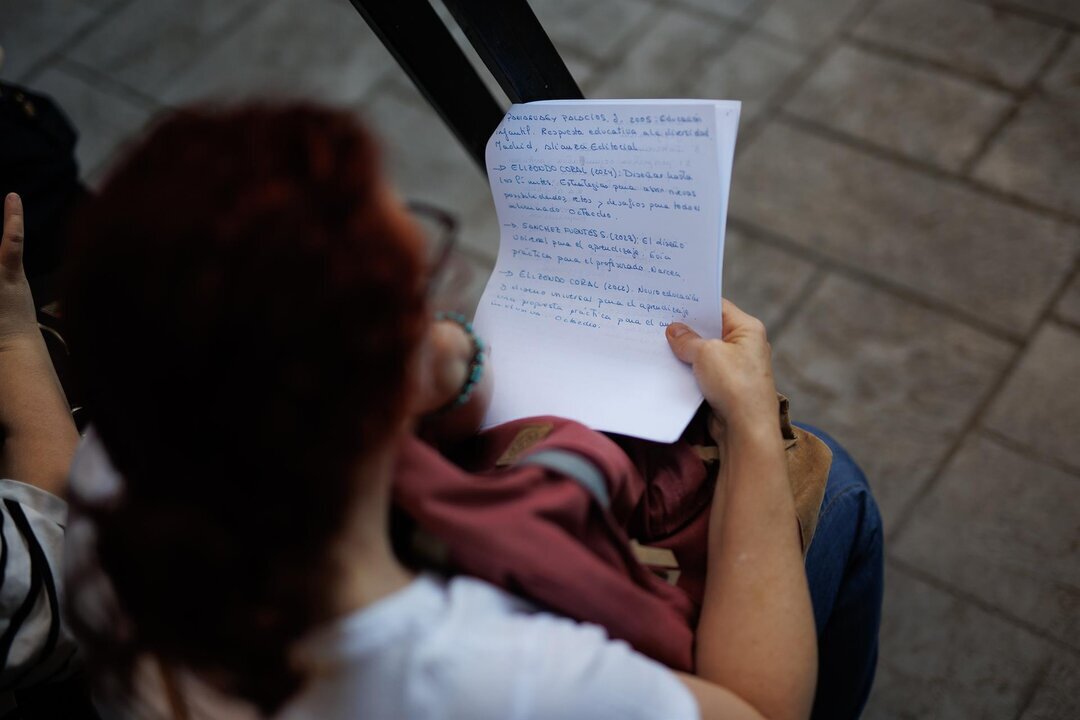 PALACIOS, J. 2005: Educación
infantil. Respuesta educativa a la diversidad
Madrid, Alianza Editorial
→ ELIZONDO CORAL (2024): Diseñar hasta
los límites. Estrategias para abrir nuevas
posibilidades, retos y desafíos para todo el
alumnado. Octaedro.
→ SANCHEZ FUENTES S. (2023): El diseño
universal para el aprendizaje: Guía
práctica para el profesorado. Narcea.
→ ELIZONDO CORAL (2022). Neuroeducación
y diseño universal para el aprendizaje
una propuesta práctica para el
Octaedro.